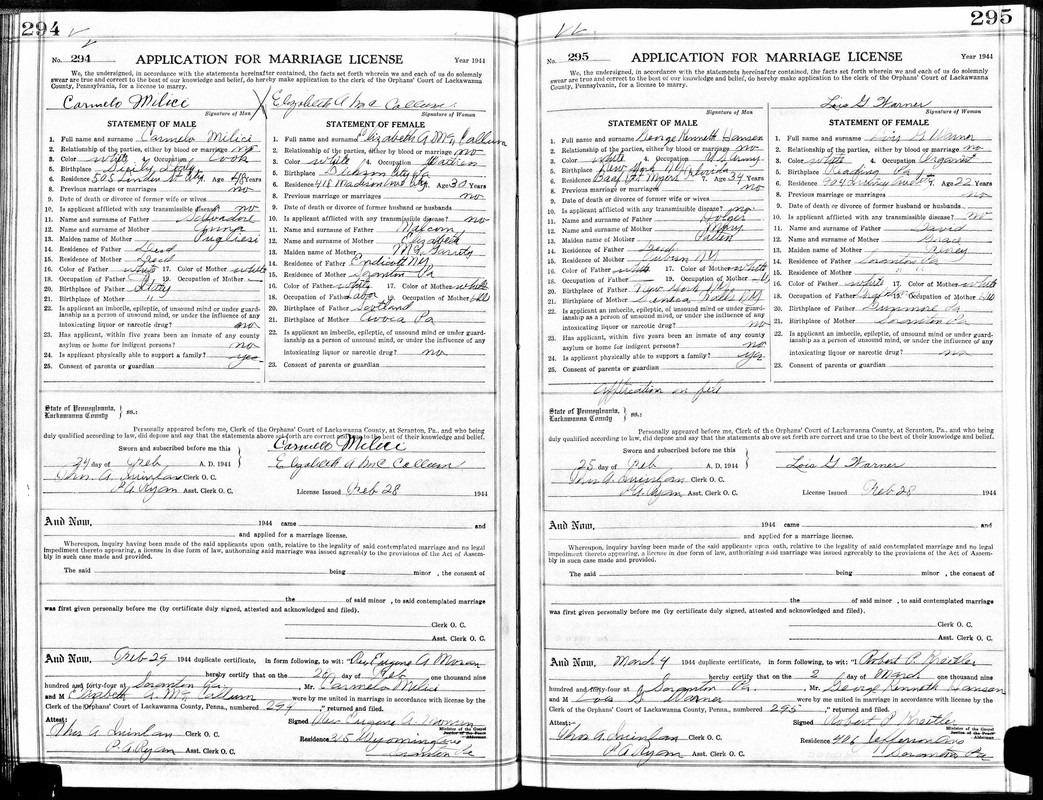 294
No. 294 APPLICATION FOR MARRIAGE LICENSE Year 1944
We, the undersigned, in accordance with the statements hereinafter contained, the facts set forth wherein we and each of us do solemnly
swear are true and correct to the best of our knowledge and belief, do hereby make application to the clerk of the Orphans' Court of Lackawanna
County, Pennsylvania, for a license to marry.
Carmelo Milici
Signature of Man
Elizabeth A Mc Callum
Signature of Woman
STATEMENT OF MALE
1. Full name and surname Carmelo Milici
2. Relationship of the parties, either by blood or marriage no
3. Color white 4. Occupation Cook
5. Birthplace Sicily, Italy
6. Residence 505 Linden St City. Age 48 Years
8. Previous marriages or marriage no
9. Date of death or divorce of former wife or wives
10. Is applicant afflicted with any transmissible disease? no
11. Name and surname of Father Salvadore
12. Name and surname of Mother Anna
13. Maiden name of Mother Puglisi
14. Residence of Father Dead
15. Residence of Mother Dead
16. Color of Father white 17. Color of Mother white
18. Occupation of Father 19. Occupation of Mother
20. Birthplace of Father Italy
21. Birthplace of Mother "
22. Is applicant an imbecile, epileptic, of unsound mind or under guard-
ianship as a person of unsound mind, or under the influence of any
intoxicating liquor or narcotic drug? no
23. Has applicant, within five years been an inmate of any county
asylum or home for indigent persons? no
24. Is applicant physically able to support a family? yes
25. Consent of parents or guardian
STATEMENT OF FEMALE
1. Full name and surname Elizabeth A Mc Callum
2. Relationship of the parties, either by blood or marriage no
3. Color white 4. Occupation Waitress
5. Birthplace Dickson City Pa
6. Residence 418 Madison Ave City. Age 30 Years
8. Previous marriage or marriages no
9. Date of death or divorce of former husband or husbands
10. Is applicant afflicted with any transmissible disease? no
11. Name and surname of Father Malcom
12. Name and surname of Mother Elizabeth
13. Maiden name of Mother
14. Residence of Father Endicott NY
15. Residence of Mother Scranton Pa
16. Color of Father white 17. Color of Mother white
18. Occupation of Father Labor 19. Occupation of Mother
20. Birthplace of Father Scotland
21. Birthplace of Mother Avoca Pa
22. Is applicant an imbecile, epileptic, of unsound mind or under guard-
ianship as a person of unsound mind, or under the influence of any
intoxicating liquor or narcotic drug? no
23. Consent of parents or guardian
State of Pennsylvania,
Lackawanna County } ss.:
Personally appeared before me, Clerk of the Orphans' Court of Lackawanna County, at Scranton, Pa., and who being
duly qualified according to law, did depose and say that the statements above set forth are correct and true to the best of their knowledge and belief.
Sworn and subscribed before me this
24 day of Feb A. D. 1944
Thos. A. Quinlan Clerk O. C.
P. A. Ryan Asst. Clerk O. C.
Carmelo Milici
Elizabeth A Mc Callum
License Issued Feb 28 1944
And Now, 1944 came and
and applied for a marriage license.
Whereupon, inquiry having been made of the said applicants upon oath, relative to the legality of said contemplated marriage and no legal
impediment thereto appearing, a license in due form of law, authorizing said marriage was issued agreeably to the provisions of the Act of Assem-
bly in such case made and provided.
The said being minor , the consent of
the of said minor , to said contemplated marriage
was first given personally before me (by certificate duly signed, attested and acknowledged and filed).
Clerk O. C.
Asst. Clerk O. C.
And Now, Feb 29 1944 duplicate certificate, in form following, to wit: "Rev Eugene A Moran
hereby certify that on the 28 day of Feb one thousand nine
hundred and forty-four at Scranton Pa. , Mr. Carmelo Milici
and M Elizabeth A. Mc Callum were by me united in marriage in accordance with license issued by the
Clerk of the Orphans' Court of Lackawanna County, Penna., numbered 294 ," returned and filed.
Attest: Signed Rev Eugene A. Moran
Minister of the Gospel
Justice of the Peace
Alderman
Thos A. Quinlan Clerk O. C.
P. A. Ryan Asst. Clerk O. C.
Residence 315 Wyoming Ave
Scranton Pa
295
No. 295 APPLICATION FOR MARRIAGE LICENSE Year 1944
We, the undersigned, in accordance with the statements hereinafter contained, the facts set forth wherein we and each of us do solemnly
swear are true and correct to the best of our knowledge and belief, do hereby make application to the clerk of the Orphans' Court of Lackawanna
County, Pennsylvania, for a license to marry.
Signature of Man
Lois G Warner
Signature of Woman
STATEMENT OF MALE
1. Full name and surname George Kenneth Hansen
2. Relationship of the parties, either by blood or marriage no
3. Color white 4. Occupation U.S. Army
5. Birthplace New York NY
6. Residence Ft Myers Florida 7. Age 34 Years
8. Previous marriages or marriage no
9. Date of death or divorce of former wife or wives
10. Is applicant afflicted with any transmissible disease? no
11. Name and surname of Father Holger
12. Name and surname of Mother Mary
13. Maiden name of Mother
14. Residence of Father Dead
15. Residence of Mother Auburn NY
16. Color of Father white 17. Color of Mother white
18. Occupation of Father 19. Occupation of Mother
20. Birthplace of Father New York
21. Birthplace of Mother Seneca Falls NY
22. Is applicant an imbecile, epileptic, of unsound mind or under guard-
ianship as a person of unsound mind, or under the influence of any
intoxicating liquor or narcotic drug? no
23. Has applicant, within five years been an inmate of any county
asylum or home for indigent persons? no
24. Is applicant physically able to support a family? yes
25. Consent of parents or guardian
Application on file
STATEMENT OF FEMALE
1. Full name and surname Lois G Warner
2. Relationship of the parties, either by blood or marriage no
3. Color white 4. Occupation Organist
5. Birthplace Reading Pa
6. Residence 904 Quincy Ave 7. Age 22 Years
8. Previous marriage or marriages no
9. Date of death or divorce of former husband or husbands
10. Is applicant afflicted with any transmissible disease? no
11. Name and surname of Father David
12. Name and surname of Mother Grace
13. Maiden name of Mother
14. Residence of Father Scranton Pa
15. Residence of Mother " "
16. Color of Father white 17. Color of Mother white
18. Occupation of Father 19. Occupation of Mother
20. Birthplace of Father Dunmore Pa
21. Birthplace of Mother Scranton Pa
22. Is applicant an imbecile, epileptic, of unsound mind or under guard-
ianship as a person of unsound mind, or under the influence of any
intoxicating liquor or narcotic drug? no
23. Consent of parents or guardian
State of Pennsylvania,
Lackawanna County } ss.:
Personally appeared before me, Clerk of the Orphans' Court of Lackawanna County, at Scranton, Pa., and who being
duly qualified according to law, did depose and say that the statements above set forth are correct and true to the best of their knowledge and belief.
Sworn and subscribed before me this
25 day of Feb A. D. 1944
Thos A. Quinlan Clerk O. C.
P. A. Ryan Asst. Clerk O. C.
Lois G Warner
License Issued Feb 28 1944
And Now, 1944 came and
and applied for a marriage license.
Whereupon, inquiry having been made of the said applicants upon oath, relative to the legality of said contemplated marriage and no legal
impediment thereto appearing, a license in due form of law, authorizing said marriage was issued agreeably to the provisions of the Act of Assem-
bly in such case made and provided.
The said being minor , the consent of
the of said minor , to said contemplated marriage
was first given personally before me (by certificate duly signed, attested and acknowledged and filed).
Clerk O. C.
Asst. Clerk O. C.
And Now, March 4 1944 duplicate certificate, in form following, to wit: "I Robert P. Kreitler
hereby certify that on the 2 day of March one thousand nine
hundred and forty-four at Scranton Pa. , Mr. George Kenneth Hansen
and M Lois G Warner were by me united in marriage in accordance with license issued by the
Clerk of the Orphans' Court of Lackawanna County, Penna., numbered 295 ," returned and filed.
Attest: Signed Robert P. Kreitler
Minister of the Gospel
Justice of the Peace
Alderman
Thos A. Quinlan Clerk O. C.
P. A. Ryan Asst. Clerk O. C.
Residence 406 Jefferson Ave
Scranton Pa